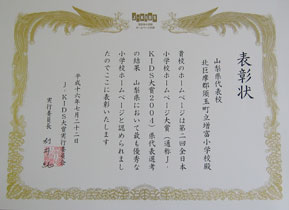 表彰状
山梨県代表校
北巨摩郡須玉町立増富小学校殿
貴校のホームページは第二回全日本
小学校ホームページ大賞(通称J-
KIDS大賞2004)県代表選考
の結果、山梨県において最も優秀な
小学校ホームページと認められまし
たのでここに表彰いたします
平成十六年七月二十二日
J-KIDS大賞実行委員会
実行委員長